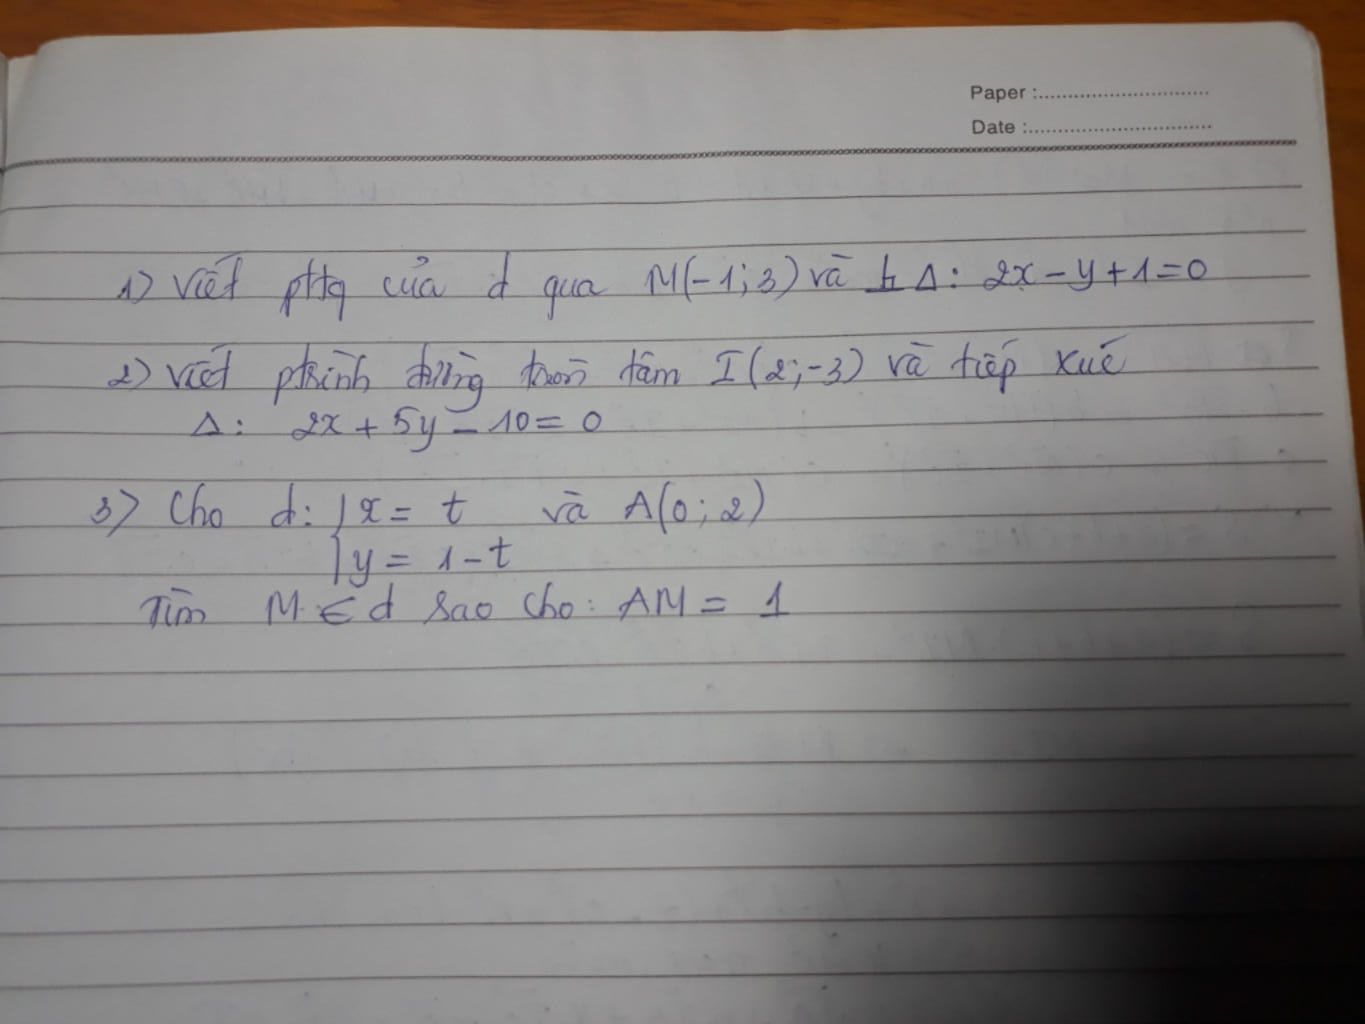 Paper :
Date :
1) Viết pttq của d qua M(-1; 3) và ⊥ Δ: 2x - y + 1 = 0
2) Viết ptrình đường tròn tâm I(2; -3) và tiếp xúc
Δ: 2x + 5y - 10 = 0
3) Cho d: { x = t và A(0; 2)
y = 1 - t
Tìm M ∈ d sao cho: AM = 1